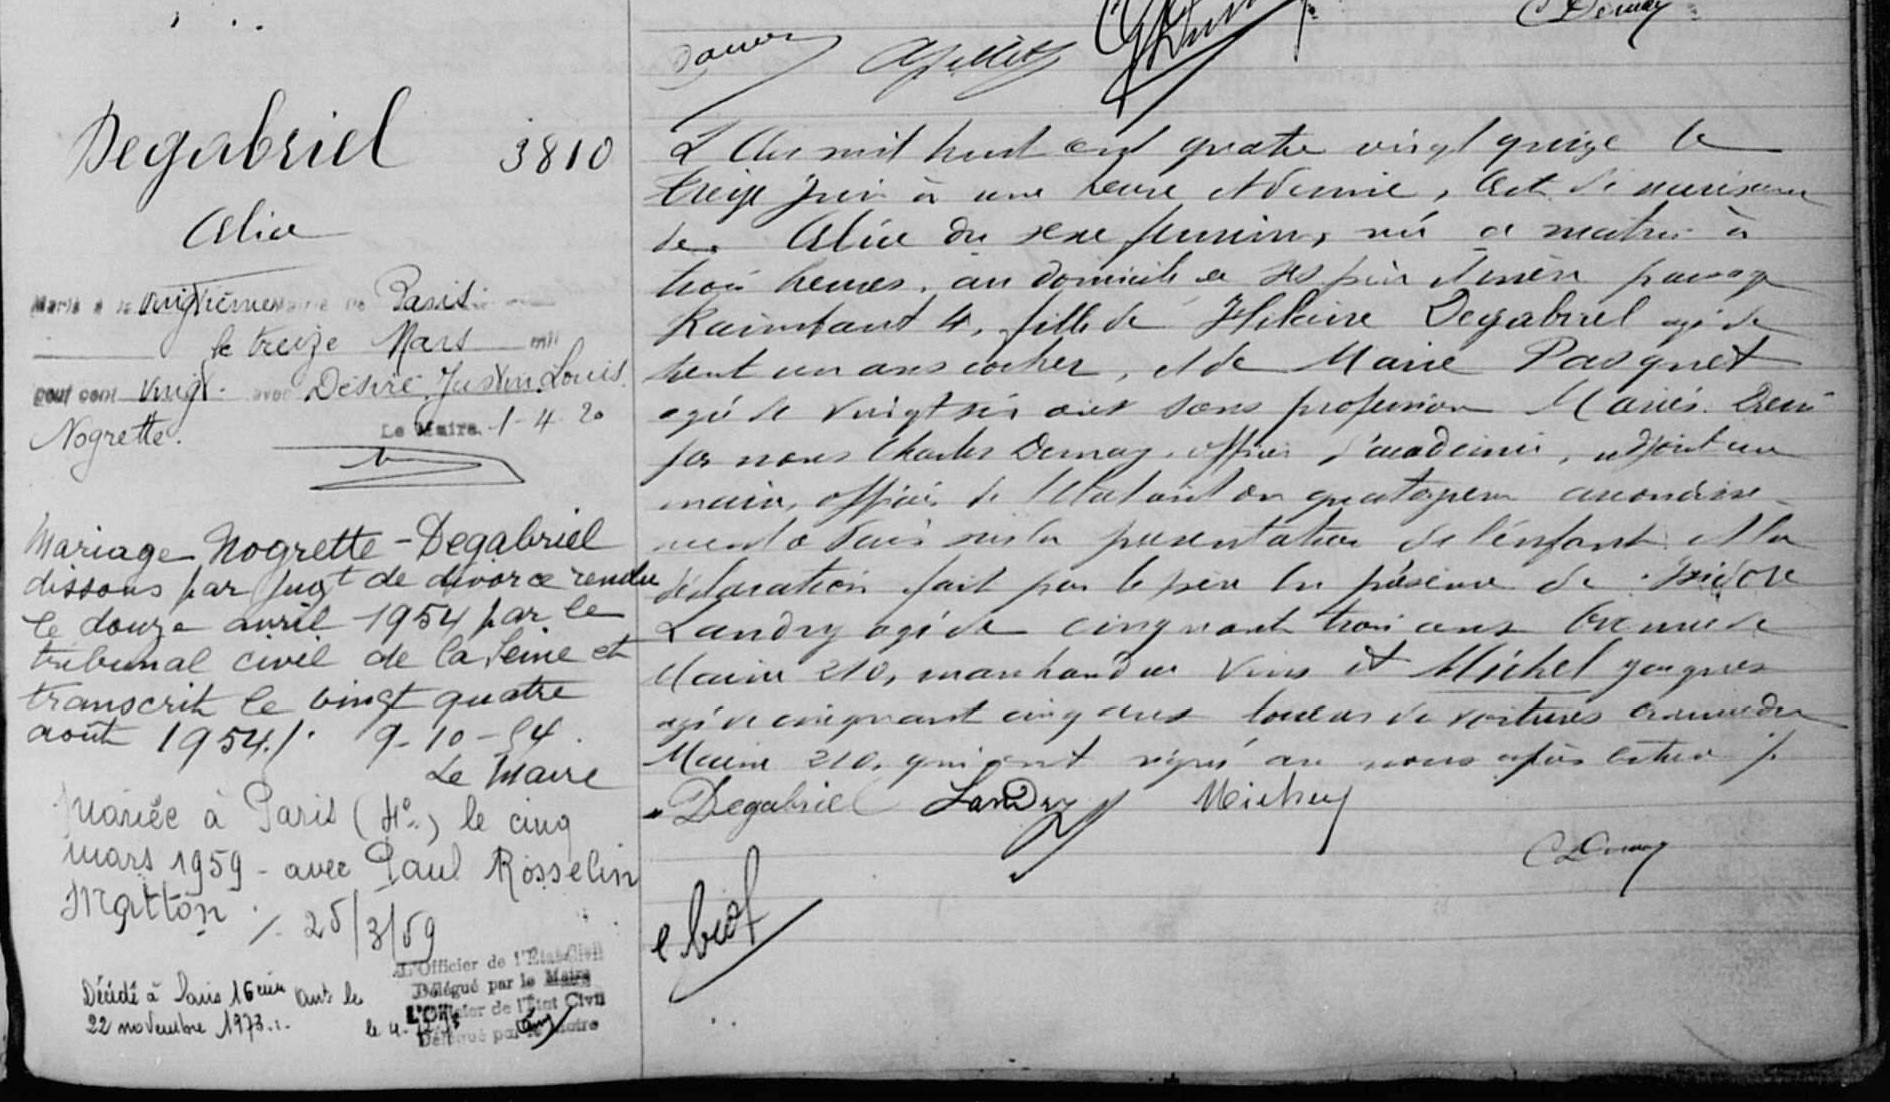 C Demay
Degabriel 3810
Alice
Marié à la vingtième mairie de Paris
le treize Mars mil
neuf cent vingt avec Désiré Justin Louis
Nogrette.
Le Maire 1-4-20
Mariage Nogrette-Degabriel
dissous par Jugt de divorce rendu
le douze avril 1954 par le
tribunal civil de la Seine et
transcrit le vingt quatre
août 1954 ./. 9-10-54.
Le Maire
Mariée à Paris (4e) le cinq
mars 1959 - avec Paul Rosselin
Matton ./. 25/3/59
L'Officier de l'État-Civil
Délégué par le Maire
Décédé à Paris 16eme arrt le
22 novembre 1973.
L'Officier de l'État Civil
Délégué par le Maire
L'An mil huit cent quatre vingt quinze le
treize Juin à une heure et demie, Acte de naissance
de Alice du sexe féminin, née ce matin à
trois heures, au domicile de ses père et mère passage
Raimbaut 4, fille de Hilaire Degabriel agé de
trent un ans cocher, et de Marie Pasquet
agée de vingt six ans sans profession Mariés. Dressé
par nous Charles Demay, officier d'académie, adjoint au
maire, officier de l'état civil du quatorzième arrondisse-
ment de Paris sur la présentation de l'enfant et la
déclaration fait par le père en présence de Isidore
Landry agé de cinquante trois ans Avenue de
Maine 210, marchand de vins et Michel Jacques
agé de cinquant cinq ans loueur de voitures avenue du
Maine 210, qui ont signé avec nous après lecture ./.
Degabriel Landry Michel
C Demay